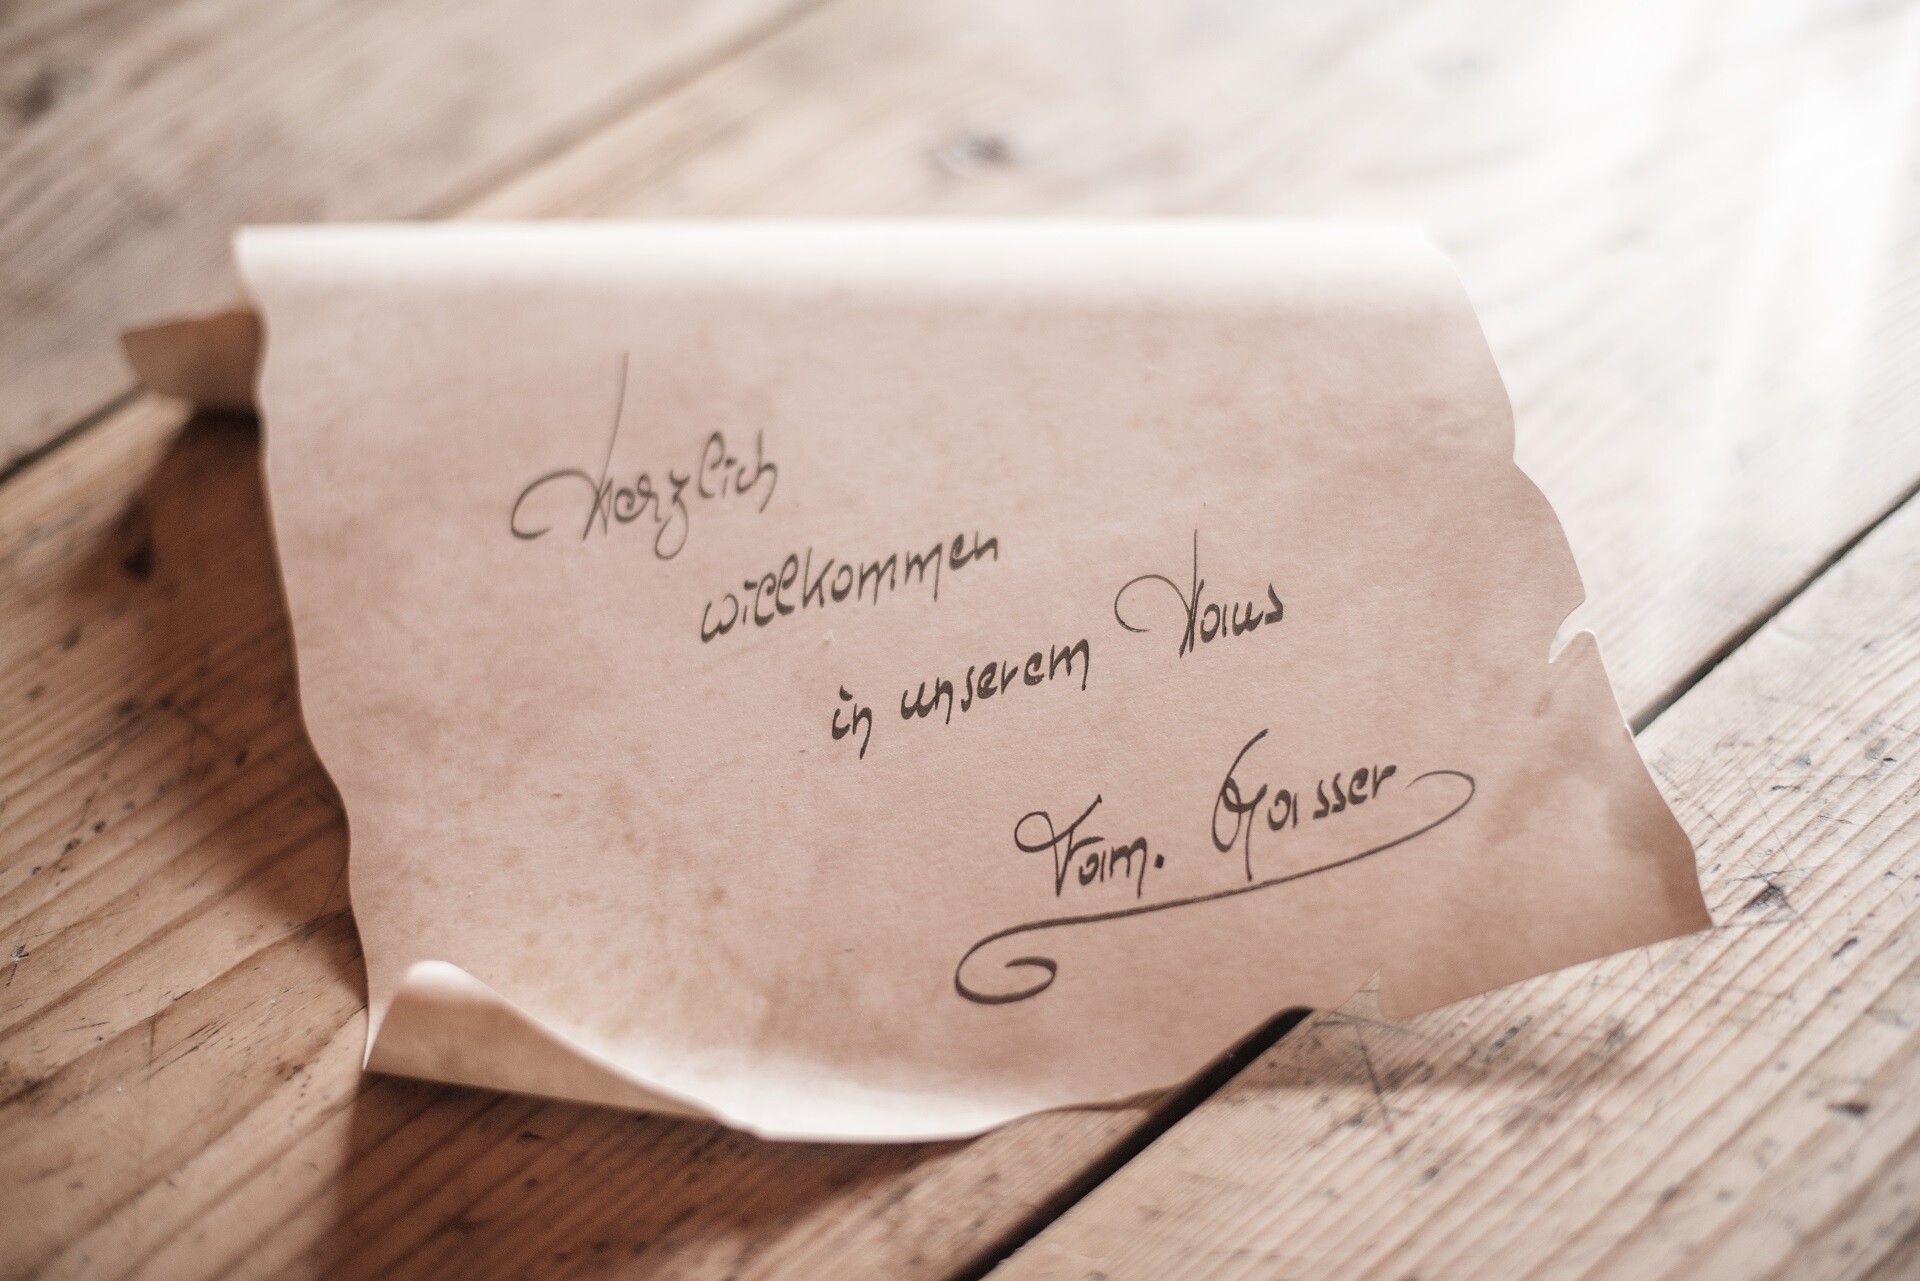 Herzlich
willkommen
in unserem Haus
Fam. Gasser